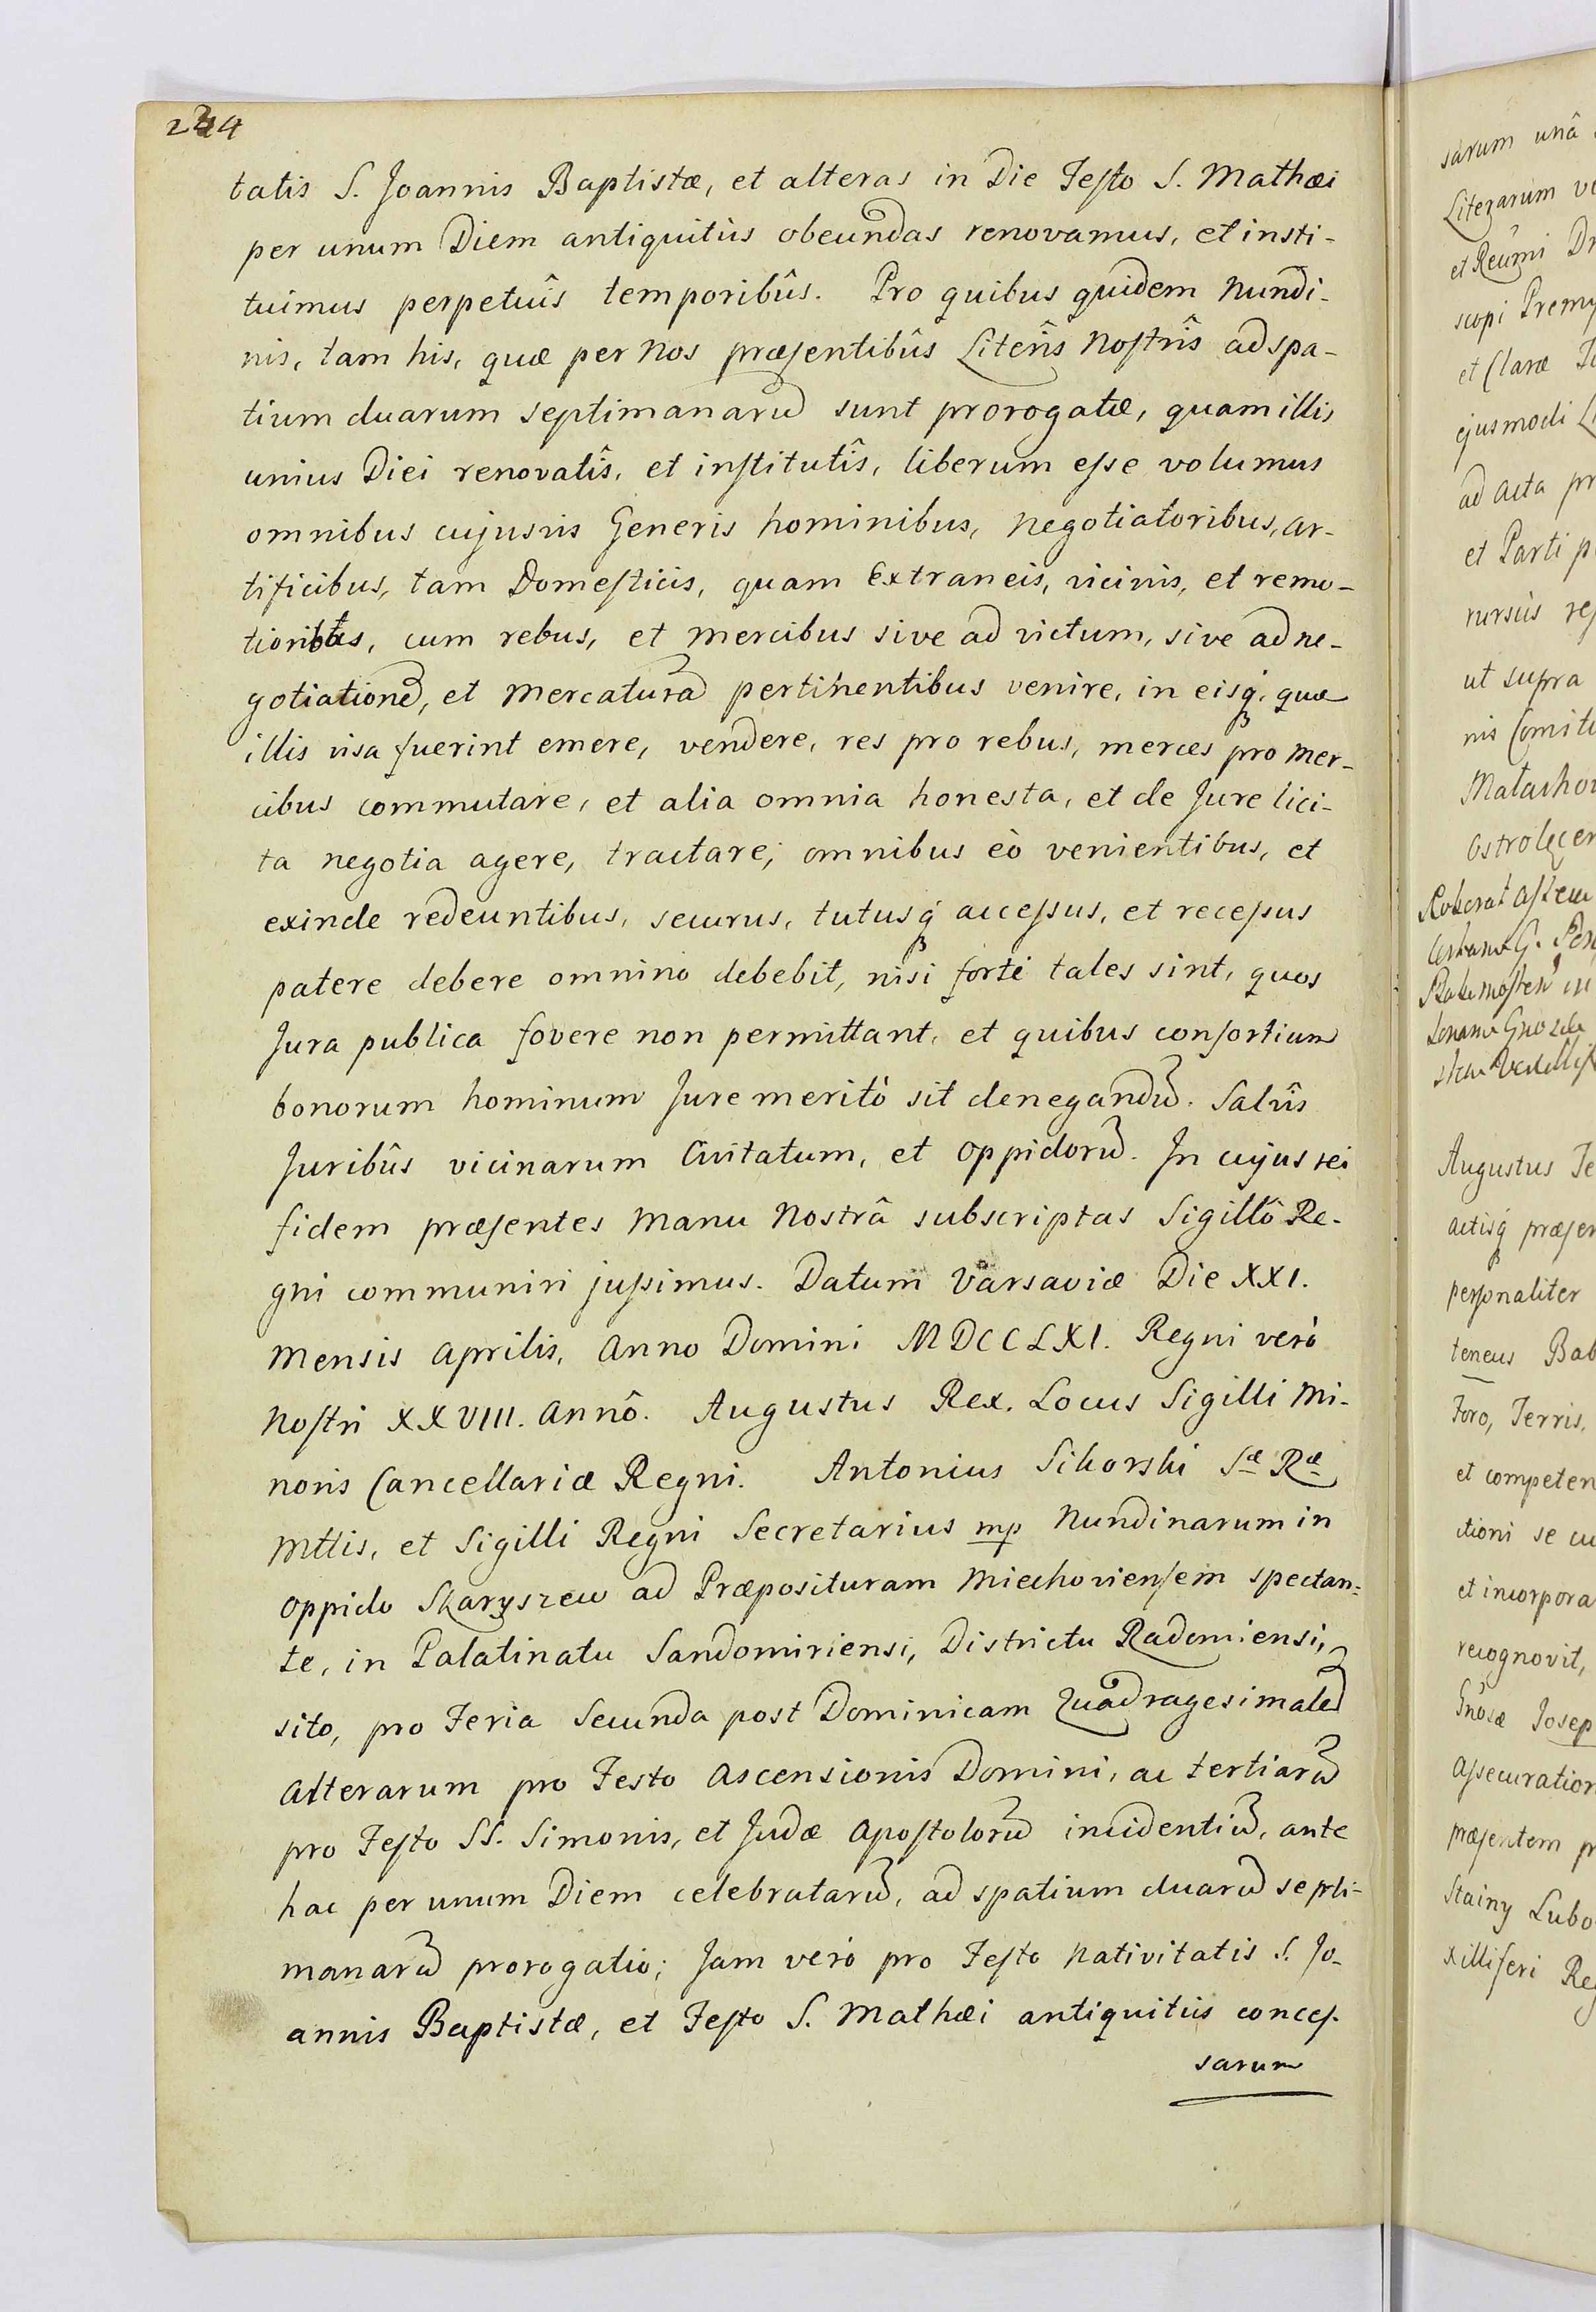 234
tatis S. Joannis Baptistæ, et alteras in Die Festo S. Mathæi
per unum Diem antiquitùs obeundas renovamus, et insti-
tuimus perpetuîs temporibûs. Pro quibus quidem Nundi-
nis, tam his, quæ per Nos præsentibûs Literîs Nostrîs ad spa-
tium duarum septimanarũ sunt prorogatæ, quam illis
unius Diei renovatîs, et institutîs, liberum esse volumus
omnibus cujusvis Generis hominibus, Negotiatoribus, Ar-
tificibus, tam Domesticis, quam Extraneis, vicinis, et remo-
tioribus, cum rebus, et Mercibus sive ad victum, sive ad ne-
gotiationẽ, et Mercaturã pertinentibus venire, in eisq́; quæ
illis visa fuerint emere, vendere, res pro rebus, merces pro Mer-
cibus commutare, et alia omnia honesta, et de Jure lici-
ta negotia agere, tractare; omnibus eò venientibus, et
exinde redeuntibus, securus, tutusq́; accessus, et recessus
patere debere omnino debebit, nisi fortè tales sint, quos
Jura publica fovere non permittant, et quibus consortium
bonorum hominum Jure meritò sit denegandũ. Salvîs
Juribûs vicinarum Civitatum, et Oppidorũ. In cujus rei
fidem præsentes Manu Nostrâ subscriptas Sigillô Re-
gni communiri jussimus. Datum Varsaviæ Die XXI.
Mensis Aprilis, Anno Domini MDCCLXI. Regni verò
Nostri XXVIII. Annô. Augustus Rex. Locus Sigilli Mi-
noris Cancellariæ Regni. Antonius Sikorski Sæ Ræ
Mttis, et Sigilli Regni Secretarius mp Nundinarum in
Oppido Skaryszew ad Præposituram Miechoviensem spectan-
te, in Palatinatu Sandomiriensi, Districtu Radomiensi,
sito, pro Feria Secunda post Dominicam Quadragesimalẽ
Alterarum pro Festo Ascensionis Domini, ac tertiarũ
pro Festo SS. Simonis, et Judæ Apostolorũ incidentiũ, ante
hac per unum Diem celebratarũ, ad spatium duarũ septi-
manarũ prorogatio; Jam verò pro Festo Nativitatis S. Jo-
annis Baptistæ, et Festo S. Mathæi antiquitùs conces-
sarum
sarum unâ
Literarum
et Reũmi
scopi
et Claræ
ejusmodi
ad Acta
et Parti
rursùs
ut supra
nis
Augustus
actisq́;
personaliter
teneus
Foro, Terris,
et
se
et
recognovit,